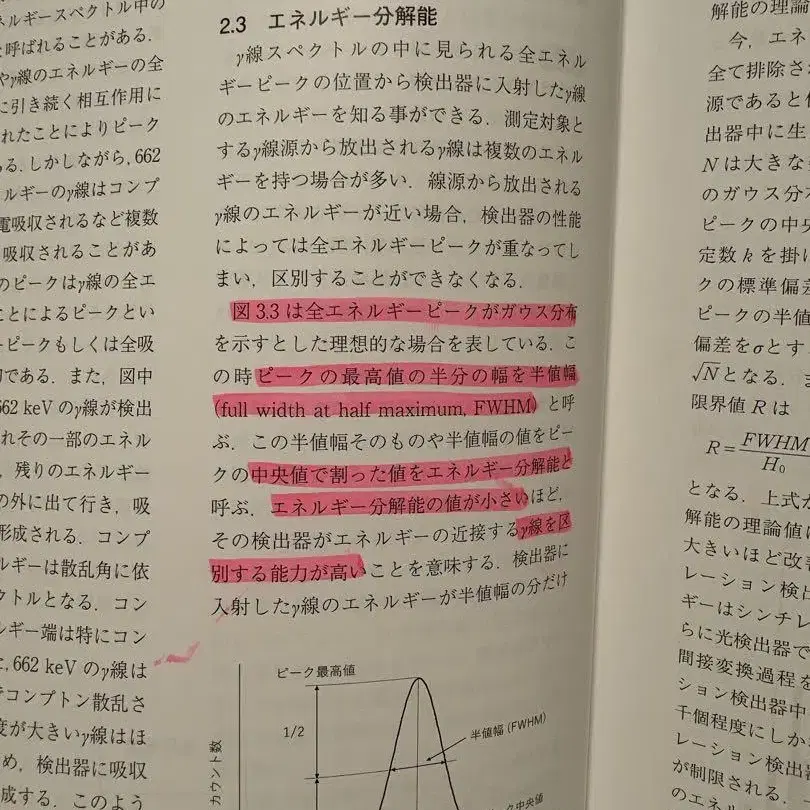 ネルギースペクトル中の
と呼ばれることがある.
やγ線のエネルギーの全
に引き続く相互作用に
れたことによりピーク
る. しかしながら, 662
ルギーのγ線はコンプ
電吸収されるなど複数
吸収されることがあ
のピークはγ線の全エ
ことによるピークとい
ーピークもしくは全吸
である. また, 図中
662 keV のγ線が検出
れその一部のエネル
, 残りのエネルギー
の外に出て行き, 吸
形成される. コンプ
ルギーは散乱角に依
クトルとなる. コン
ルギー端は特にコン
, 662 keV のγ線は
コンプトン散乱さ
度が大きいγ線はほ
め, 検出器に吸収
成する. このよう
2.3 エネルギー分解能
γ線スペクトルの中に見られる全エネル
ギーピークの位置から検出器に入射したγ線
のエネルギーを知る事ができる. 測定対象と
するγ線源から放出されるγ線は複数のエネル
ギーを持つ場合が多い. 線源から放出される
γ線のエネルギーが近い場合, 検出器の性能
によっては全エネルギーピークが重なってし
まい, 区別することができなくなる.
図 3.3 は全エネルギーピークがガウス分布
を示すとした理想的な場合を表している. こ
の時ピークの最高値の半分の幅を半値幅
(full width at half maximum, FWHM) と呼
ぶ. この半値幅そのものや半値幅の値をピー
クの中央値で割った値をエネルギー分解能と
呼ぶ. エネルギー分解能の値が小さいほど,
その検出器がエネルギーの近接するγ線を区
別する能力が高いことを意味する. 検出器に
入射したγ線のエネルギーが半値幅の分だけ
ピーク最高値
1/2
半値幅 (FWHM)
カウント数
ク中央値
解能の理論
今, エネ
全て排除さ
源であると
出器中に生
N は大きな
のガウス分
ピークの中央
定数 k を掛け
クの標準偏差
ピークの半値
偏差をσとす
√N となる.
限界値 R は
R = FWHM / H₀
となる. 上式か
解能の理論値に
大きいほど改善
レーション検出
ギーはシンチレ
らに光検出器で
間接変換過程を
ション検出器中
千個程度にしか
レーション検出
が制限される.
のエネル